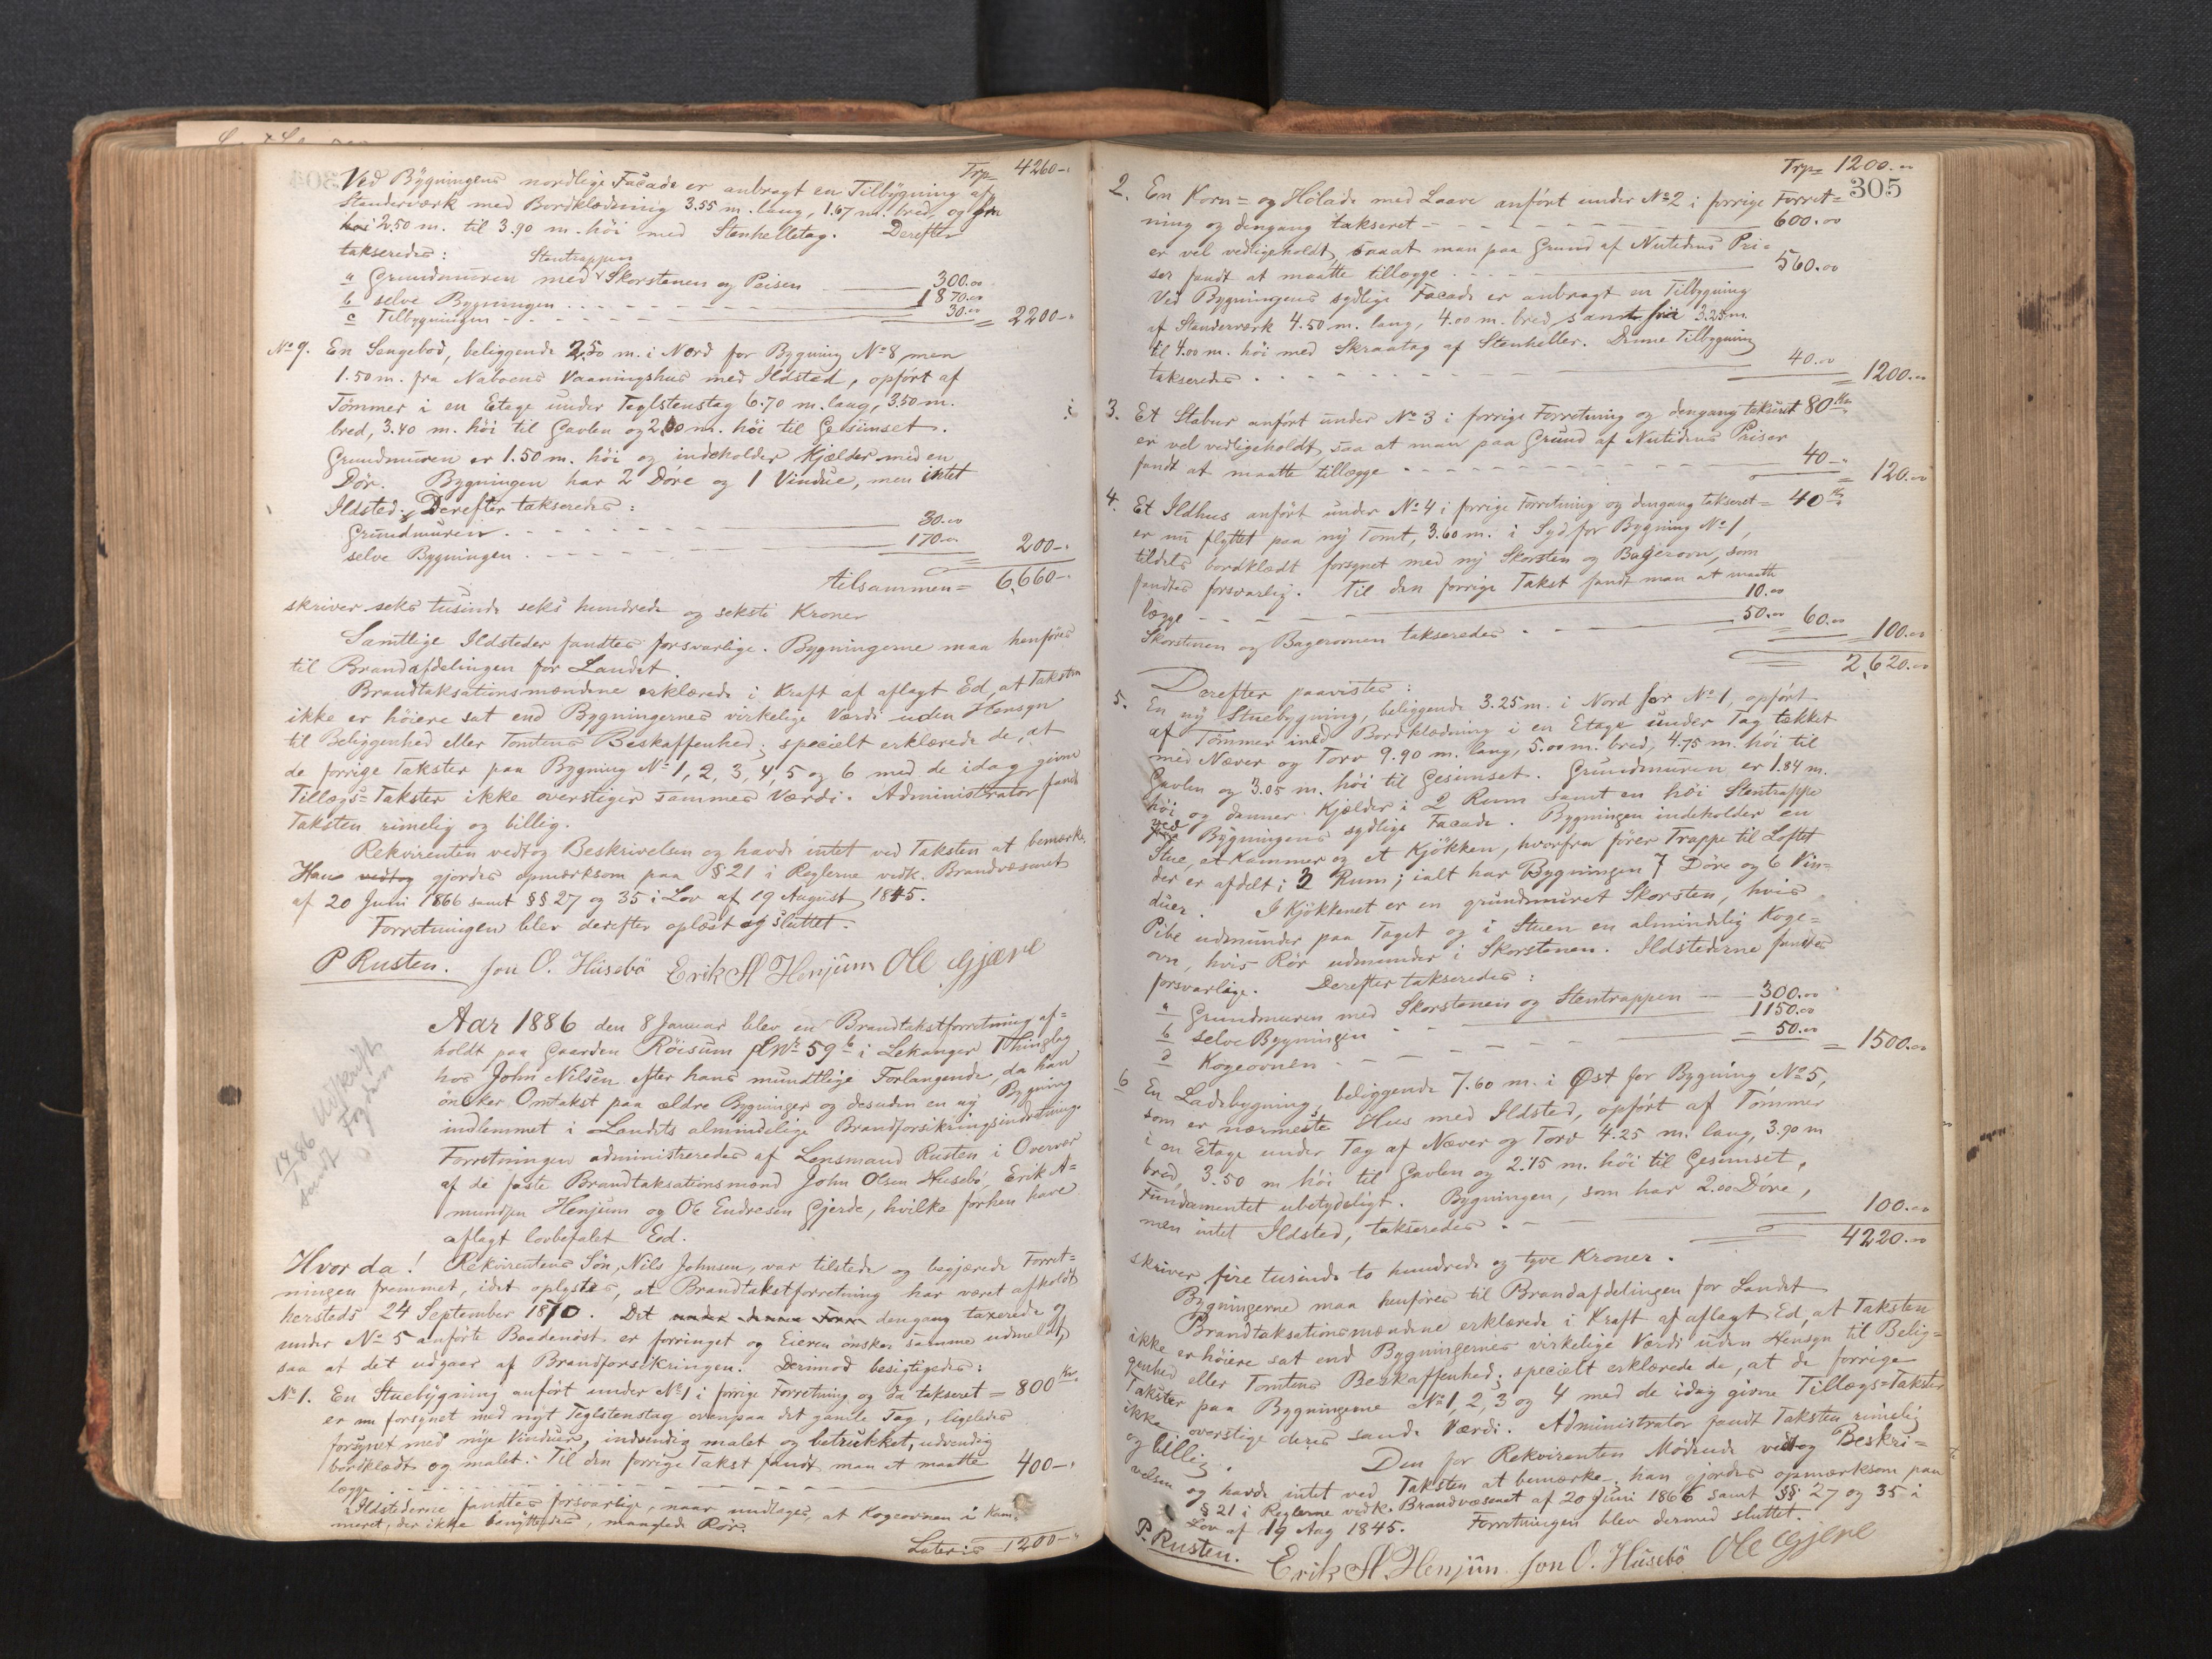 Trp= 4260-"
Ved Bygningens nordlige Facade er anbragt en Tilbygning af
Standerværk med Bordklædning 3.55 m. lang, 1.67 m. bred, og fra
høi 2.50 m. til 3.90 m. høi med Stenhelletag. Derefter
takseredes:
Stentrappen
a Grundmuren med Skorstenen og Peisen 300.00
b selve Bygningen 1870.00
c Tilbygningen 30.00 = 2200-"
No 9. En Sengebod, beliggende 2,50 m. i Nord for Bygning No 8, men
1.50 m. fra Naboens Vaaningshus med Ildsted, opført af
Tømmer i en Etage under Teglstenstag 6.70 m. lang, 3.50 m.
bred, 3.40 m. høi til Gavlen og 2.00 m. høi til Gesimset.
Grundmuren er 1.50 m. høi og indeholder Kjælder med en
Dør. Bygningen har 2 Døre og 1 Vindue, men intet
Ildsted. Derefter takseredes:
Grundmuren 30.00
selve Bygningen 170.00 200-"
tilsammen = 6,660-"
skriver seks tusinde seks hundrede og seksti Kroner
Samtlige Ildsteder fandtes forsvarlige. Bygningerne maa henføres
til Brandafdelingen for Landet.
Brandtaksationsmændene erklærede i Kraft af aflagt Ed, at Taksten
ikke er høiere sat end Bygningernes virkelige Værdi uden Hensyn
til Beliggenhed eller Tomtens Beskaffenhed; specielt erklærede de, at
de forrige Takster paa Bygning No 1, 2, 3, 4, 5 og 6 med de idag givne
Tillægs=Takster ikke overstiger sammes Værdi. Administrator fandt
Taksten rimelig og billig.
Rekvirenten vedtog Beskrivelsen og havde intet ved Taksten at bemærke.
Han vedtog gjordes opmærksom paa § 21 i Reglerne vedk. Brandvæsenet
af 20 Juni 1866 samt §§ 27 og 35 i Lov af 19 August 1845.
Forretningen blev derefter oplæst og sluttet.
P Rusten. Jon O. Húsebö Erik A Henjúm Ole Gjære
Aar 1886 den 8 Januar blev en Brandtakstforretning af=
holdt paa Gaarden Röisum No 59 b i Lekanger Thinglag
hos John Nilsen efter hans mundtlige Forlangende, da han
ønsker Omtakst paa ældre Bygninger og desuden en ny Bygning
indlemmet i Landets almindelige Brandforsikringsindretning.
Forretningen administreredes af Lensmand Rusten i Overvær
af de faste Brandtaksationsmænd John Olsen Husebö, Erik A=
mundsen Henjum og Ole Endresen Gjerde, hvilke forhen have
aflagt lovbefalet Ed.
Udskrift
Fogden
sendt
Hvor da! Rekvirentens Søn, Nils Johnsen, var tilstede og begjærede Forret=
ningen fremmet, idet oplystes, at Brandtakstforretning har været afholdt
hersteds 24 September 1870. Det under denne Forr dengang taxerede og
under No 5 anførte Baadenøst er forringet og Eieren ønsker samme udmeldt,
saa at det udgaar af Brandforsikringen. Derimod besigtigedes:
No 1. En Stuebygning anført under No 1 i forrige Forretning og da takseret = 800 Kr.
er nu forsynet med nyt Teglstenstag ovenpaa det gamle Tag, ligeledes
forsynet med nye Vinduer, indvendig malet og betrukket, udvendig
bordklædt og malet. Til den forrige Takst fandt man at maatte
lægge 400-"
Ildstederne fandtes forsvarlige, naar undtages, at Kogeovnen i Kam=
meret, der ikke benyttedes, manglede Rør.
Lateris 1200-"
305
Trp= 1200.00
2. En Korn= og Hølade med Laave anført under No 2 i forrige Forret=
ning og dengang takseret 600.00
er vel vedligeholdt, saaat man paa Grund af Nutidens Pri=
ser fandt at maatte tillægge 560.00
Ved Bygningens sydlige Facade er anbragt en Tilbygning
af Standerværk 4.50 m. lang, 4.00 m. bred samt fra 3.25 m.
til 4.00 m. høi med Skraatag af Stenheller. Denne Tilbygning
takseredes 40.00 = 1200.00
3. Et Stabur anført under No 3 i forrige Forretning og dengang takseret 80 Kr
er vel vedligeholdt, saa at man paa Grund af Nutidens Priser
fandt at maatte tillægge 40-" = 120.00
4. Et Ildhus anført under No 4 i forrige Forretning og dengang takseret = 40 Kr
er nu flyttet paa ny Tomt, 3.60 m. i Syd for Bygning No 1,
tildels bordklædt forsynet med ny Skorsten og Bagerovn, som
fandtes forsvarlig. Til den forrige Takst fandt man at maatte
lægge 10.00
Skorstenen og Bagerovnen takseredes 50.00 60.00 100.00
2,620.00
Derefter paavistes:
5. En ny Stuebygning, beliggende 3.25 m. i Nord for No 1, opført
af Tømmer med Bordklædning i en Etage under Tag tækket
med Næver og Torv 9.90 m. lang, 5.00 m. bred, 4.75 m. høi til
Gavlen og 3.05 m. høi til Gesimset. Grundmuren er 1.84 m.
høi og danner Kjælder i 2 Rum samt en høi Stentrappe
ved Bygningens sydlige Facade. Bygningen indeholder en
Stue, et Kammer og et Kjøkken, hvorfra fører Trappe til Loftet,
der er afdelt i 3 Rum; ialt har Bygningen 7 Døre og 6 Vin=
duer. I Kjøkkenet er en grundmuret Skorsten, hvis
Pibe udmunder paa Taget og i Stuen en almindelig Koge=
ovn, hvis Rør udmunder i Skorstenen. Ildstederne fandtes
forsvarlige. Derefter takseredes:
a Grundmuren med Skorstenen og Stentrappen 300.00
b selve Bygningen 1150.00
c Kogeovnen 50.00 = 1500.00
6 En Ladebygning, beliggende 7.60 m. i Øst for Bygning No 5,
som er nærmeste Hus med Ildsted, opført af Tømmer
i en Etage under Tag af Næver og Torv 4.25 m. lang, 3.90 m
bred, 3.50 m høi til Gavlen og 2.75 m. høi til Gesimset.
Fundamentet ubetydeligt. Bygningen, som har 2.00 Døre,
men intet Ildsted, takseredes 100.00
4220.00
skriver fire tusinde to hundrede og tyve Kroner.
Bygningerne maa henføres til Brandafdelingen for Landet
Brandtaksationsmændene erklærede i Kraft af aflagt Ed, at Taksten
ikke er høiere sat end Bygningernes virkelige Værdi uden Hensyn til Belig=
genhed eller Tomtens Beskaffenhed; specielt erklærede de, at de forrige
Takster paa Bygningerne No 1, 2, 3 og 4 med de idag givne Tillægs=Takster
ikke overstige deres sande Værdi. Administrator fandt Taksten rimelig
og billig. Den for Rekvirenten Mødende vedtog Beskri=
velsen og havde intet ved Taksten at bemærke. han gjordes opmærksom paa
§ 21 i Reglerne vedk. Brandvæsenet af 20 Juni 1866 samt §§ 27 og 35 i
Lov af 19 Aug 1845. Forretningen blev dermed sluttet.
P. Rusten. Erik A. Henjúm Jon O. Húsebö Ole Gjære